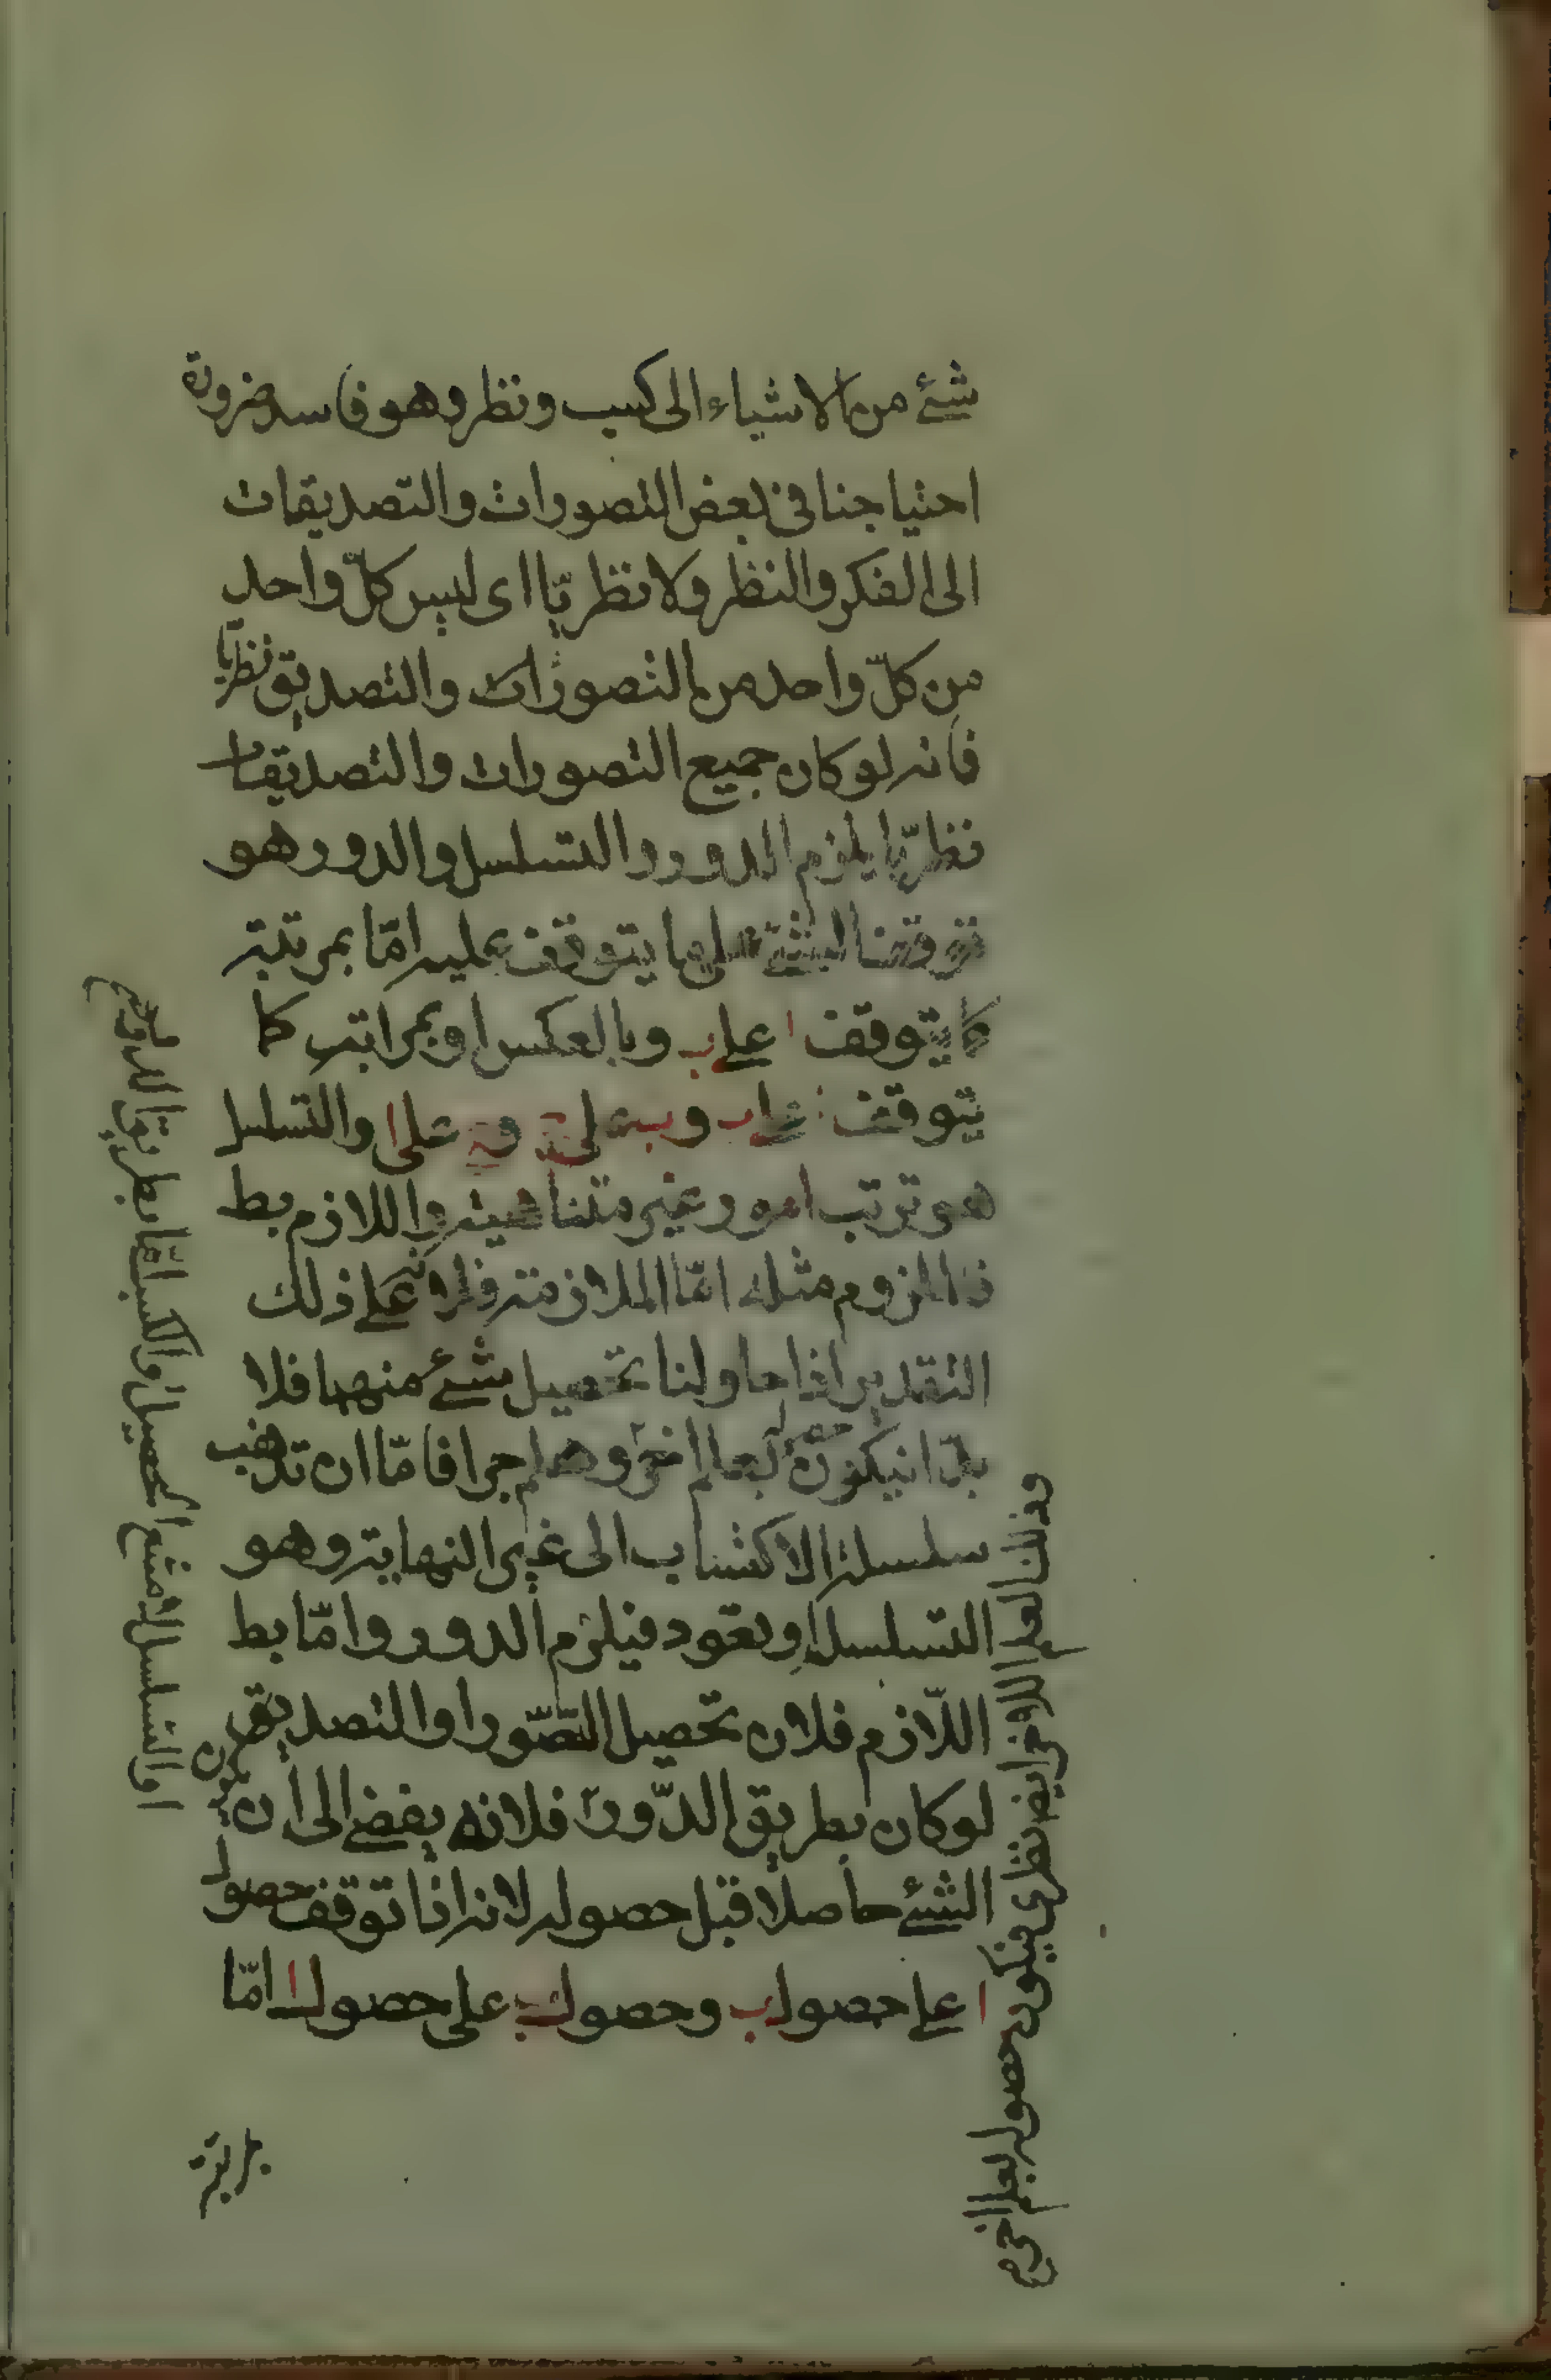 شئ من الاشياء الى كسب ونظر وهو فاسد ضرورة
احتياجنا فى بعض التصورات والتصديقات
الى الفكر والنظر ولا نظريّا اى ليس كلّ واحد
من كلّ واحد من التصورات والتصديق نظريا
فانه لو كان جميع التصورات والتصديقات
نظريّا يلزم الدور والتسلسل والدور هو
توقف الشئ على ما يتوقف عليه امّا بمرتبة
كما يتوقف ا على ب وبالعكس او بمراتب كما
يتوقف ا على ب وب على ج وج على ا والتسلسل
هو ترتب امور غير متناهية واللازم بط
فالملزوم مثله امّا الملازمة فلانه على ذلك
التقدير اذا حاولنا تحصيل شئ منهما فلا
بدّ ان يكون بعلم اخر وهلم جرا فامّا ان تذهب
سلسلة الاكتساب الى غير النهاية وهو
التسلسل او تعود فيلزم الدور وامّا بط
اللّازم فلان تحصيل التصّور او التصديق
لو كان بطريق الدّور فلانه يفضى الى ان يكون
الشئ حاصلا قبل حصوله لانه اذا توقف حصول
ا على حصول ب وحصول ب على حصول ا امّا
بمرتبة
وذلك العلم الاخر ايض نظرى فيكون حصوله بعلم اخر
او التسلسل لامتنع التحصيل والاكتساب امّا بطريق الدور